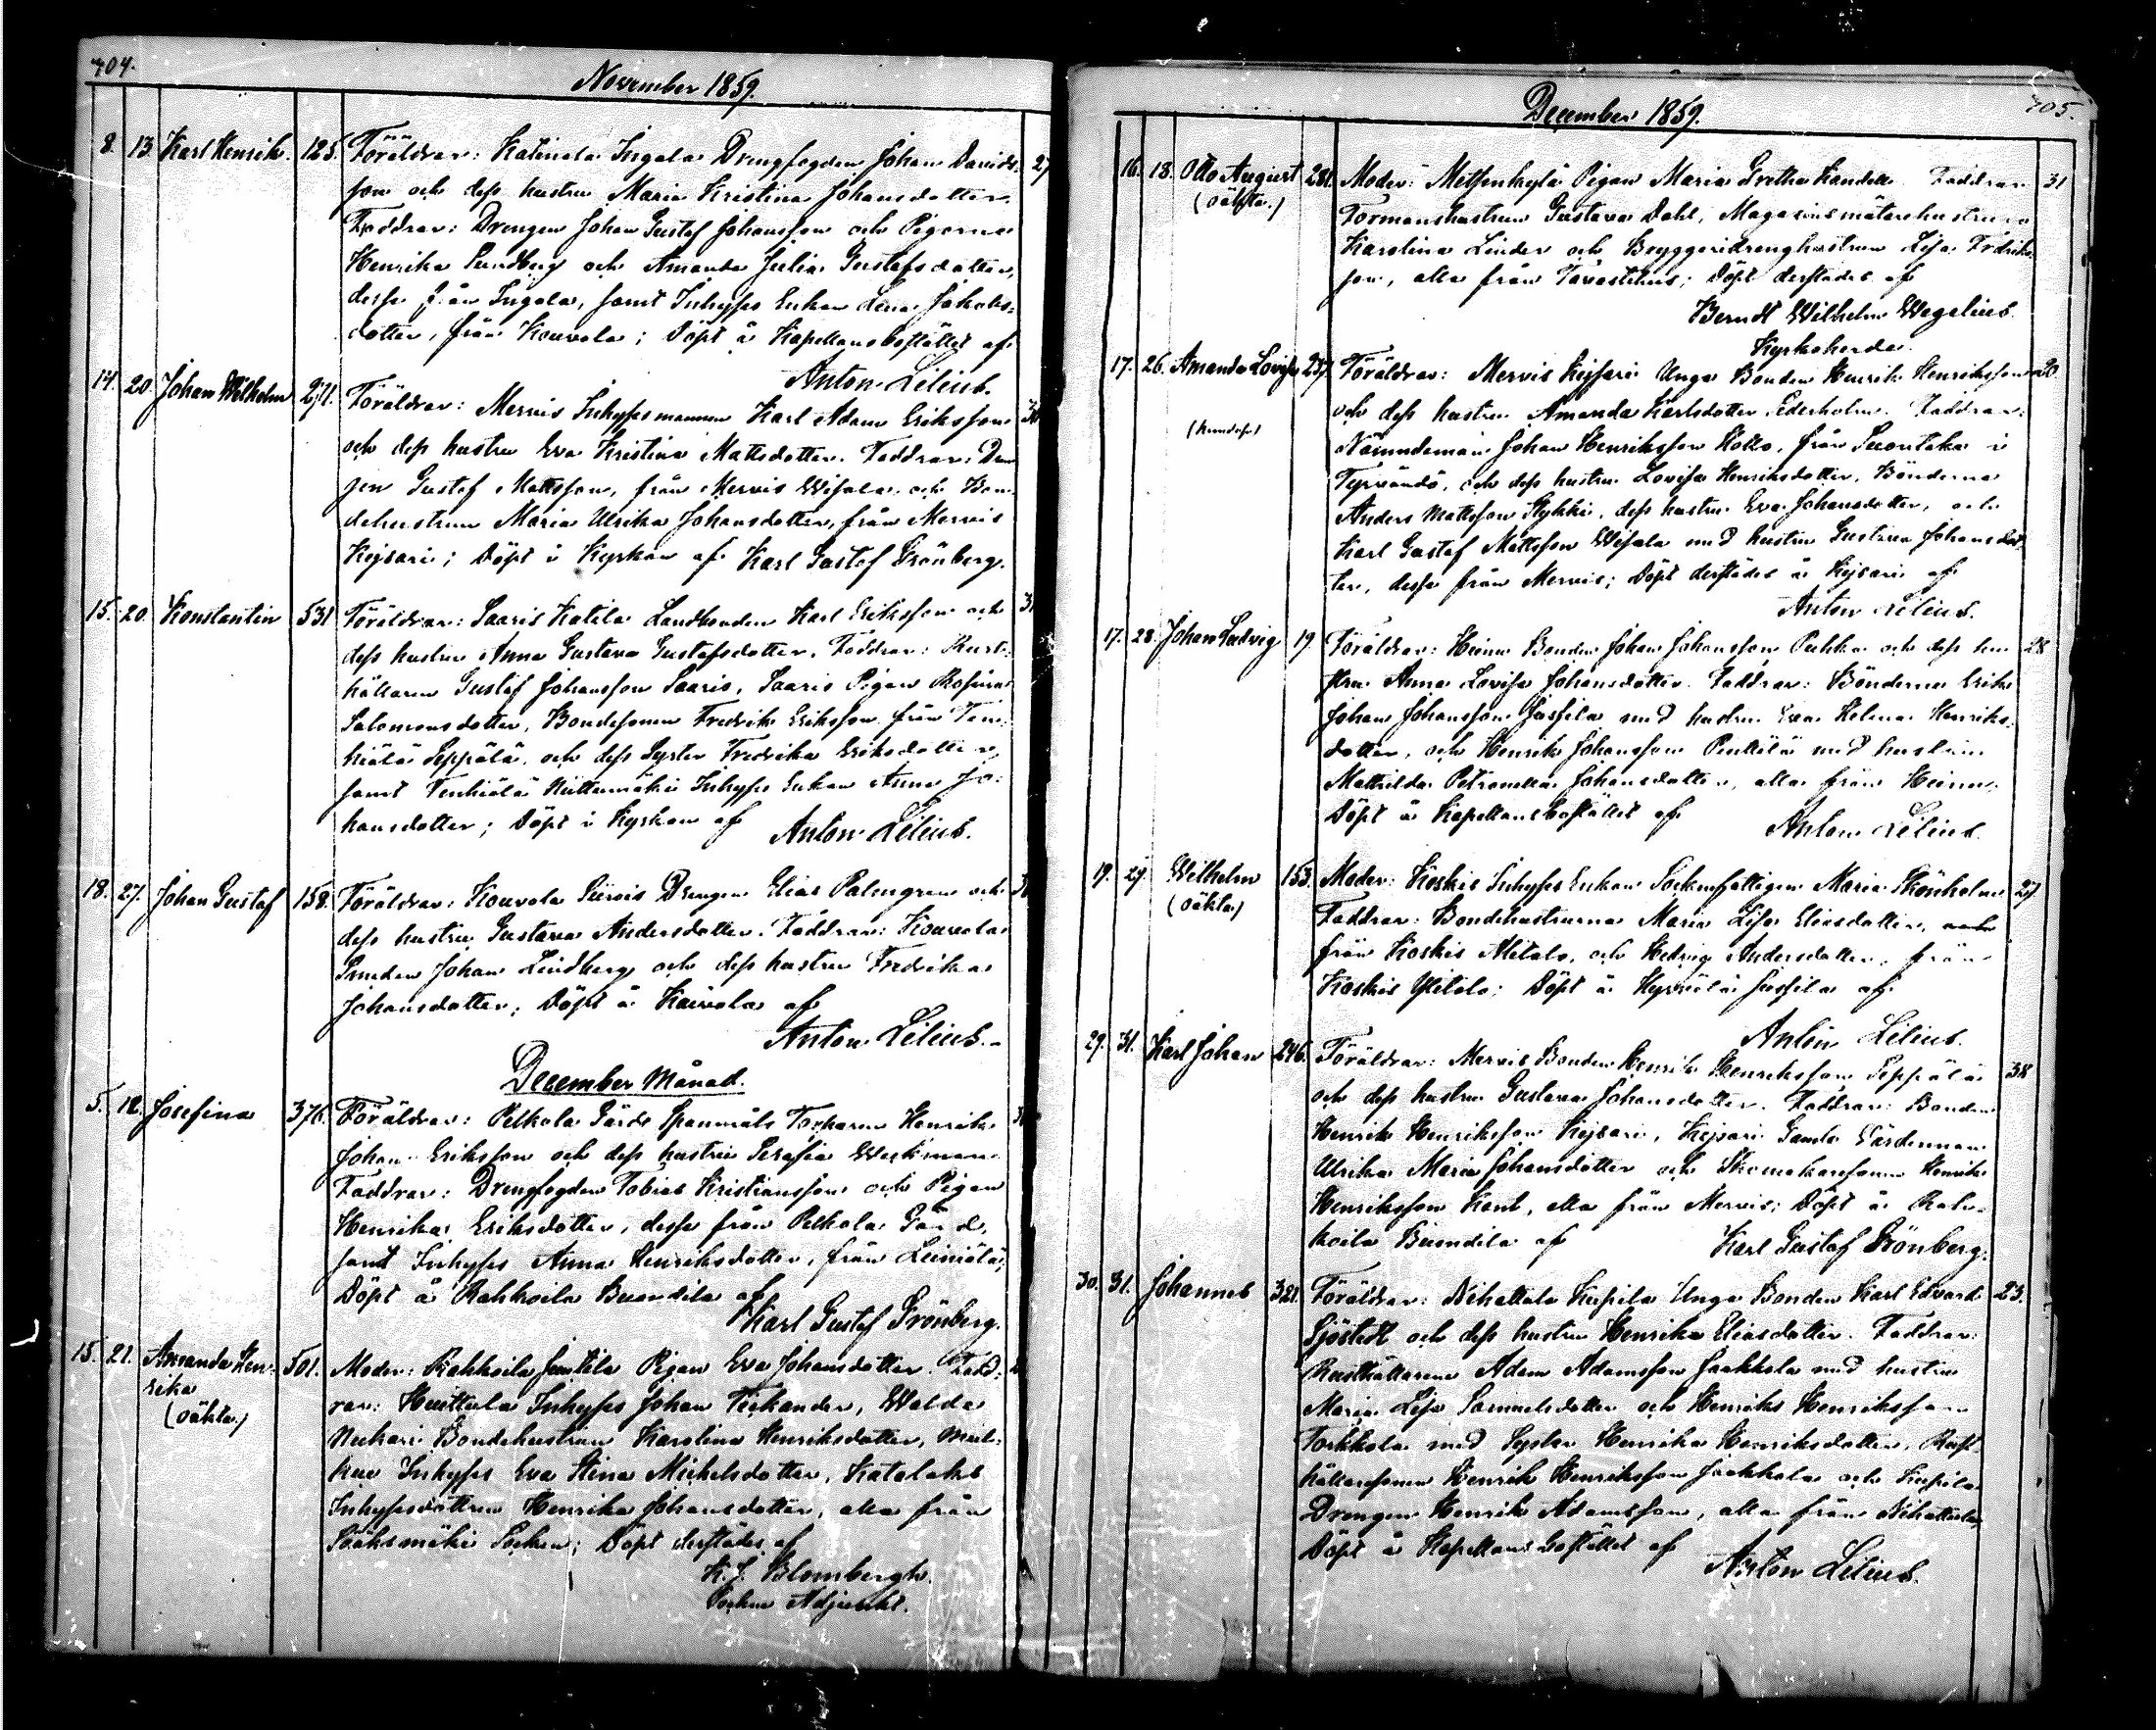 704.
November 1859.
8. 13. Karl Henrik. 125. Föräldrar: Katinala Ingala Drengfogden Johan Davids- 27
son och dess hustru Maria Kristina Johansdotter.
Faddrar: Drengen Johan Gustaf Johansson och Pigorna
Henrika Sundberg och Amanda Julia Gustafsdotter,
desse från Ingala, samt Inhyses Enkan Lena Jakobs-
dotter, från Kouvola; Döpt å Kapellansbostället af
Anton Lilius.
14. 20. Johan Wilhelm 271. Föräldrar: Mervis Inhysesmannen Karl Adam Eriksson
och dess hustru Eva Kristina Mattsdotter. Faddrar: Dren
gen Gustaf Mattsson, från Mervis Wifala och Bon-
dehustrun Maria Ulrika Johansdotter, från Mervis
Kejsari; Döpt i Kyrkan af Karl Gustaf Grönberg.
15. 20. Konstantin 531 Föräldrar: Saaris Katila Landbonden Karl Eriksson och
dess hustru Anna Gustava Gustafsdotter. Faddrar: Rust-
hållaren Gustaf Johansson Saaris, Saaris Pigan Rosina
Salomonsdotter, Bondesonen Fredrik Eriksson från Ten-
hiälä Seppälä, och dess Syster Fredrika Eriksdotter,
samt Tenhiälä Inhyses Enkan Anna Jo-
hansdotter; Döpt i Kyrkan af Anton Lilius.
18. 27. Johan Gustaf 158. Föräldrar: Kouvola Drengen Elias Palmgren och
dess hustru Gustava Andersdotter. Faddrar: Kouvola
Smeden Johan Lindberg och dess hustru Fredrika
Johansdotter; Döpt å Kouvola af
Anton Lilius.
December Månad.
5. 12. Josefina 376. Föräldrar: Pelkola Gårds Spanmåls Torparen Henrik
Johan Eriksson och dess hustru Serafia Weckman.
Faddrar: Drengfogden Tobias Kristiansson och Pigan
Henrika Eriksdotter, desse från Pelkola Gård,
samt Inhyses Anna Henriksdotter, från Leiniälä;
Döpt å Rahkoila Buandila af
Karl Gustaf Grönberg.
15. 21. Amanda Hen- 501. Moder: Rahkoila Pigan Eva Johansdotter. Fadd-
rika rar: Huittula Inhyses Johan Tickander, Walde
(oäkta.) Nukari Bondehustrun Karolina Henriksdotter,
Inhyses Eva Stina Michelsdotter, Katalaks
Inhysesdottren Henrika Johansdotter, alla från
Sääksmäki Socken; Döpt derstädes af
K. J. Blombergh.
Socken Adjunkt.
705.
December 1859.
16. 18. Otto August 281. Moder: Metsenkylä Pigan Maria Gretha Kandell. Faddrar: 31
(oäkta.) Formanshustrun Gustava Dahl, Magasinsmätarehustrun
Karolina Linder och Bryggeridrenghustrun Lisa Fredriks-
son, alla från Tavastehus; Döpt derstädes af
Berndt Wilhelm Wegelius.
Kyrkoherde.
17. 26. Amanda Lovisa 237. Föräldrar: Mervis Kejsari Unga Bonden Henrik Henriksson 20
och dess hustru Amanda Karlsdotter Sederholm. Faddrar:
Nämndeman Johan Henriksson Kokko, från Suontaka i
Tyrvändö, och dess hustru Lovisa Henriksdotter, Bönderna
Anders Mattsson Kykki, dess hustru Eva Johansdotter, och
Karl Gustaf Mattsson Wifala med hustru Gustava Johansdot-
ter, desse från Mervis; Döpt derstädes å Kejsari af
Anton Lilius.
17. 28. Johan Ludvig 19. Föräldrar: Hienu Bonden Johan Johansson Puhka och dess hu- 28
stru Anna Lovisa Johansdotter. Faddrar: Bönderna Erik
Johan Johansson Jussila med hustru Eva Helena Henriks-
dotter, och Henrik Johansson Penttilä med hustru
Mathilda Petronella Johansdotter, alla från Hienu;
Döpt å Kapellansbostället af Anton Lilius.
19. 29. Wilhelm 153. Moder: Koskis Inhyses Enkan Sockenfattigen Maria Skönholm 27
(oäkta) Faddrar: Bondehustrurna Maria Lisa Eliasdotter,
från Koskis Alitalo, och Hedvig Andersdotter, från
Koskis Ylitalo; Döpt å Hyrvälä Jussila af
Anton Lilius.
29. 31. Karl Johan 246. Föräldrar: Mervis Bonden Henrik Henriksson Seppälä 38
och dess hustru Gustava Johansdotter. Faddrar: Bonden
Henrik Henriksson Kejsari, Kejsari Gamla Värdinnan
Ulrika Maria Johansdotter och Skomakaresonen Henrik
Henriksson Kant, alla från Mervis; Döpt å Rah-
koila Buandila af Karl Gustaf Grönberg.
30. 31. Johannes 321. Föräldrar: Nihattula Kupila Unga Bonden Karl Edvard 23.
Sjöstedt och dess hustru Henrika Eliasdotter. Faddrar:
Rusthållarena Adam Adamsson Jaakkola med hustru
Maria Lisa Samuelsdotter och Henrik Henriksson
Torkkola med Syster Henrika Henriksdotter, Rust-
hållaresonen Henrik Henriksson Jaakkola och Kupila
Drengen Henrik Adamsson, alla från Nihattula;
Döpt å Kapellansbostället af Anton Lilius.